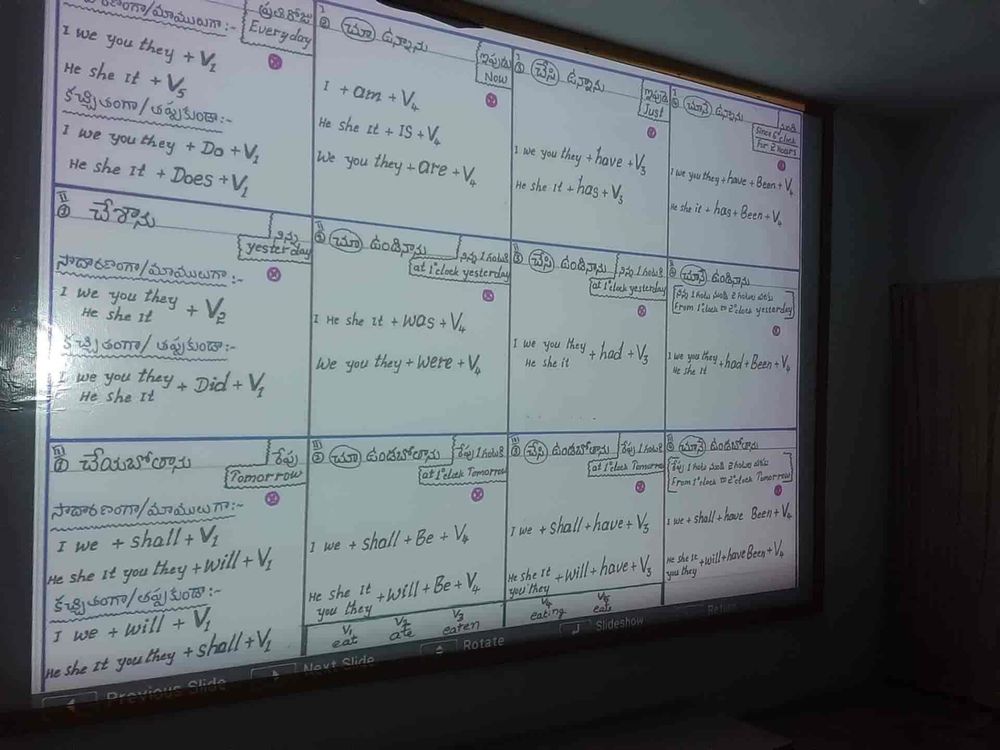 సాదారణంగా/మాములుగా :-
ప్రతిరోజు
Everyday
I we you they + V1
He she It + V5
కచ్చితంగా/తప్పకుండా:-
I we you they + Do + V1
He she It + Does + V1
I
② చూ ఉన్నాను
ఇప్పుడు
Now
I + am + V4
He she It + IS + V4
We you they + are + V4
I
③ చేసి ఉన్నాను
ఇప్పుడే
Just
I we you they + have + V3
He she It + has + V3
I
④ చూనే ఉన్నాను
నుండి
Since 6'clock
For 2 hours
I we you they + have + Been + V4
He she it + has + Been + V4
II
① చేశాను
నిన్న
yesterday
సాదారణంగా/మాములుగా :-
I we you they
He she It + V2
కచ్చితంగా/తప్పకుండా:-
I we you they
He she It + Did + V1
II
② చూ ఉండినాను
నిన్న 1 గంటకి
at 1'clock yesterday
I He she It + was + V4
We you they + were + V4
II
③ చేసి ఉండినాను
నిన్న 1 గంటకి
at 1'clock yesterday
I we you they
He she it + had + V3
II
④ చూనే ఉండినాను
నిన్న 1 గంట నుండి 2 గంటల వరకు
From 1'clock to 2'clock yesterday
I we you they
He she It + had + Been + V4
III
① చేయబోతాను
రేపు
Tomorrow
సాదారణంగా/మాములుగా :-
I we + shall + V1
He she It you they + will + V1
కచ్చితంగా/తప్పకుండా:-
I we + will + V1
He she It you they + shall + V1
III
② చూ ఉండబోతాను
రేపు 1 గంటకి
at 1'clock Tomorrow
I we + shall + Be + V4
He she It
you they + will + Be + V4
III
③ చేసి ఉండబోతాను
రేపు 1 గంటకి
at 1'clock Tomorrow
I we + shall + have + V3
He she It
you they + will + have + V3
III
④ చూనే ఉండబోతాను
రేపు 1 గంట నుండి 2 గంటల వరకు
From 1'clock to 2'clock Tomorrow
I we + shall + have Been + V4
He she It
you they + will + have Been + V4
V1 V2 V3 V4 V5
eat ate eaten eating eats
Previous Slide Next Slide Rotate Slideshow Return